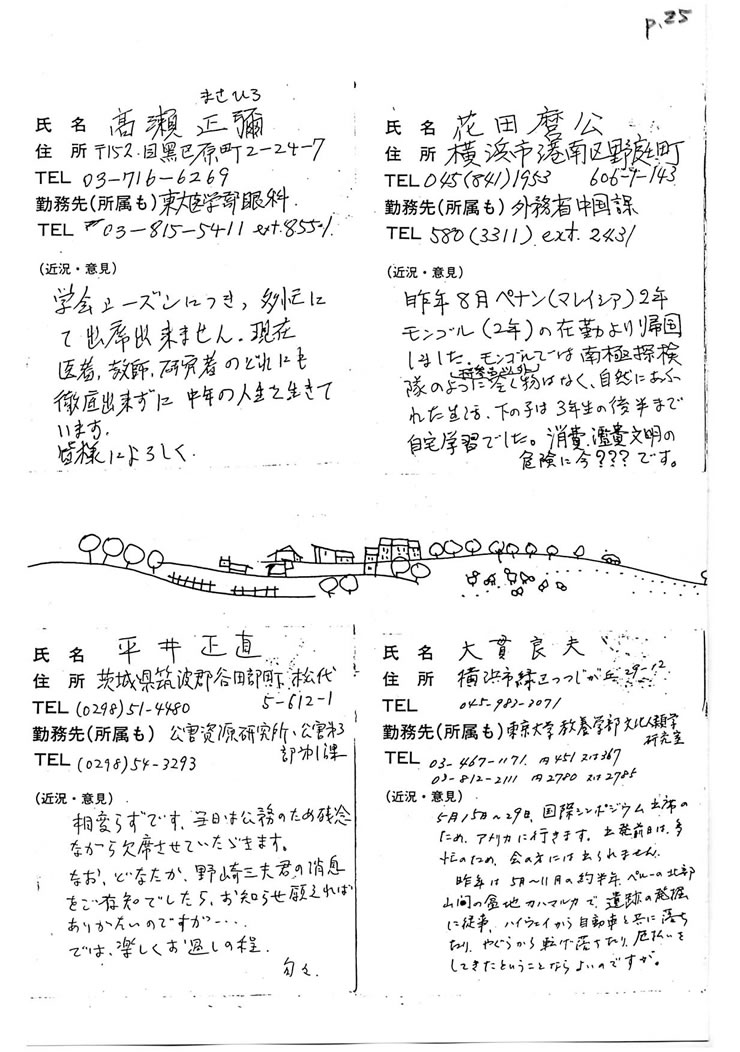 p.25
まさひろ
氏 名 高瀬正彌
住 所 〒152.目黒区原町2-24-7
TEL 03-716-6269
勤務先(所属も) 東大医学部眼科.
TEL 03-815-5411 ext.8551
(近況・意見)
学会シーズンにつき、多忙に
て出席出来ません。現在
医者、教師、研究者のどれにも
徹底出来ずに中年の人生を生きて
います。
皆様によろしく
氏 名 花田麿公
住 所 横浜市港南区野庭町
606-9-143
TEL 045(841)1953
勤務先(所属も) 外務省中国課
TEL 580(3311) ext. 2431
(近況・意見)
昨年8月ペナン(マレイシア)2年
モンゴル(2年)の在勤より帰国
しました。モンゴルでは南極探検
隊のように全く物はなく、自然にあふ
れた生活、下の子は3年生の後半まで
自宅学習でした。消費、濫費文明の
危険に今???です。
氏 名 平井正直
住 所 茨城県筑波郡谷田部町松代
5-612-1
TEL (0298)51-4480
勤務先(所属も) 公害資源研究所、公害第3
部第1課
TEL (0298)54-3293
(近況・意見)
相変らずです。当日は公務のため残念
ながら欠席させていただきます。
なお、どなたか、野崎三夫君の消息
をご存知でしたら、お知らせ願えれば
ありがたいのですが……
では、楽しくお過しの程.
匆々.
氏 名 大貫良夫
住 所 横浜市緑区つつじが丘29-12
TEL 045-982-2071
勤務先(所属も) 東京大学教養学部文化人類学
研究室
TEL 03-467-1171. 内451又は367
03-812-2111 内2780又は2785
(近況・意見)
5月15日〜29日、国際シンポジウム出席の
ため、アメリカに行きます。出発前日は、多
忙のため、会の方には出られません。
昨年は5月〜11月の約半年、ペルーの北部
山間の盆地カハマルカで、遺跡の発掘
に従事。ハイウェイから自動車と共に落ち
たり、やぐらから転げ落ちたり、厄払いを
してきたということならよいのですが。